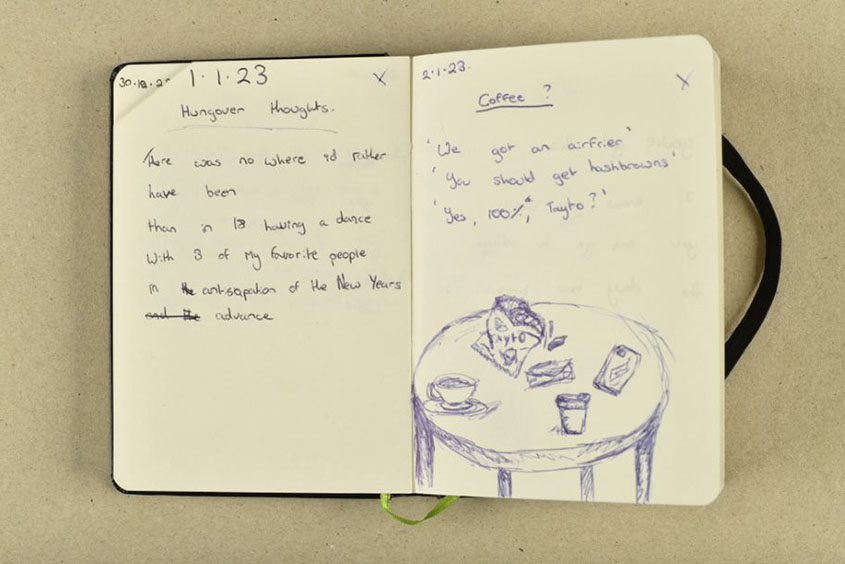 30.12.22
1.1.23
Hungover thoughts.
There was no where id rather
have been
than in 18 having a dance
with 3 of my favorite people
in the antisapation of the New Years
and the advance
2.1.23.
Coffee ?
'We got an airfrier'
'You should get hashbrowns'
'Yes, 100%, Tayto?'
Tayto